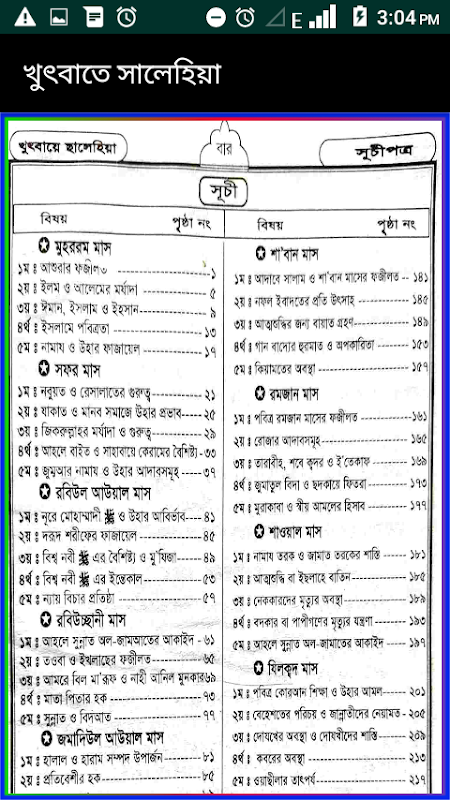 E 3:04 PM
খুৎবাতে সালেহিয়া
খুৎবায়ে ছালেহিয়া
বার
সূচীপত্র
সূচী
বিষয় পৃষ্ঠা নং
মুহররম মাস
১ম ঃ আশুরার ফজীলত ১
২য় ঃ ইলম ও আলেমের মর্যাদা ৫
৩য় ঃ ঈমান, ইসলাম ও ইহসান ৯
৪র্থ ঃ ইসলামে পবিত্রতা ১৩
৫ম ঃ নামায ও উহার ফাজায়েল ১৭
সফর মাস
১ম ঃ নবুয়ত ও রেসালাতের গুরুত্ব ২১
২য় ঃ যাকাত ও মানব সমাজে উহার প্রভাব ২৫
৩য় ঃ জিকরুল্লাহর মর্যাদা ও গুরুত্ব ২৯
৪র্থ ঃ আহলে বাইত ও সাহাবায়ে কেরামের বৈশিষ্ট্য ৩৩
৫ম ঃ জুমআর নামায ও উহার আদাবসমূহ ৩৭
রবিউল আউয়াল মাস
১ম ঃ নূরে মোহাম্মাদী ﷺ ও উহার আবির্ভাব ৪১
২য় ঃ দরূদ শরীফের ফাজায়েল ৪৫
৩য় ঃ বিশ্ব নবী ﷺ এর বৈশিষ্ট্য ও মু'যিজা ৪৯
৪র্থ ঃ বিশ্ব নবী ﷺ এর ইন্তেকাল ৫৩
৫ম ঃ ন্যায় বিচার প্রতিষ্ঠা ৫৭
রবিউচ্ছানী মাস
১ম ঃ আহলে সুন্নাত অল-জামআতের আকাইদ - ৬১
২য় ঃ তওবা ও ইখলাছের ফজীলত ৬৫
৩য় ঃ আমরে বিল মা'রূফ ও নাহী আনিল মুনকার ৬৯
৪র্থ ঃ মাতা-পিতার হক ৭৩
৫ম ঃ সুন্নাত ও বিদআত ৭৭
জমাদিউল আউয়াল মাস
১ম ঃ হালাল ও হারাম সম্পদ উপার্জন ৮১
২য় ঃ প্রতিবেশীর হক ৮৫
বিষয় পৃষ্ঠা নং
শা'বান মাস
১ম ঃ আদাবে সালাম ও শা'বান মাসের ফজীলত -- ১৪১
২য় ঃ নফল ইবাদতের প্রতি উৎসাহ ১৪৫
৩য় ঃ আত্মশুদ্ধির জন্য বায়াত গ্রহণ ১৪৯
৪র্থ ঃ গান বাদ্যের হুরমাত ও অপকারিতা ১৫৩
৫ম ঃ কিয়ামতের অবস্থা ১৫৭
রমজান মাস
১ম ঃ পবিত্র রমজান মাসের ফজীলত ১৬১
২য় ঃ রোজার আদাবসমূহ ১৬৫
৩য় ঃ তারাবীহ, শবে ক্বদর ও ই'তেকাফ ১৬৯
৪র্থ ঃ জুমাতুল বিদা ও ছদকায়ে ফিতরা ১৭৩
৫ম ঃ মুরাকাবা ও স্বীয় আমলের হিসাব ১৭৭
শাওয়াল মাস
১ম ঃ নামায তরক ও জামাত তরকের শাস্তি ১৮১
২য় ঃ আত্মশুদ্ধি বা ইছলাহে বাতিন ১৮৫
৩য় ঃ নেককারদের মৃত্যুর অবস্থা ১৮৯
৪র্থ ঃ বদকার বা পাপীগণের মৃত্যুর যন্ত্রণা ১৯৩
৫ম ঃ আহলে সুন্নাত অল-জামাতের আকাইদ ১৯৭
যিলক্বদ মাস
১ম ঃ পবিত্র কোরআন শিক্ষা ও উহার আমল ২০১
২য় ঃ বেহেশতের পরিচয় ও জান্নাতীদের নেয়ামত - ২০৫
৩য় ঃ দোযখের অবস্থা ও দোযখীদের শাস্তি ২০৯
৪র্থ ঃ কবরের অবস্থা ২১৩
৫ম ঃ ওয়াছীলার তাৎপর্য ২১৭